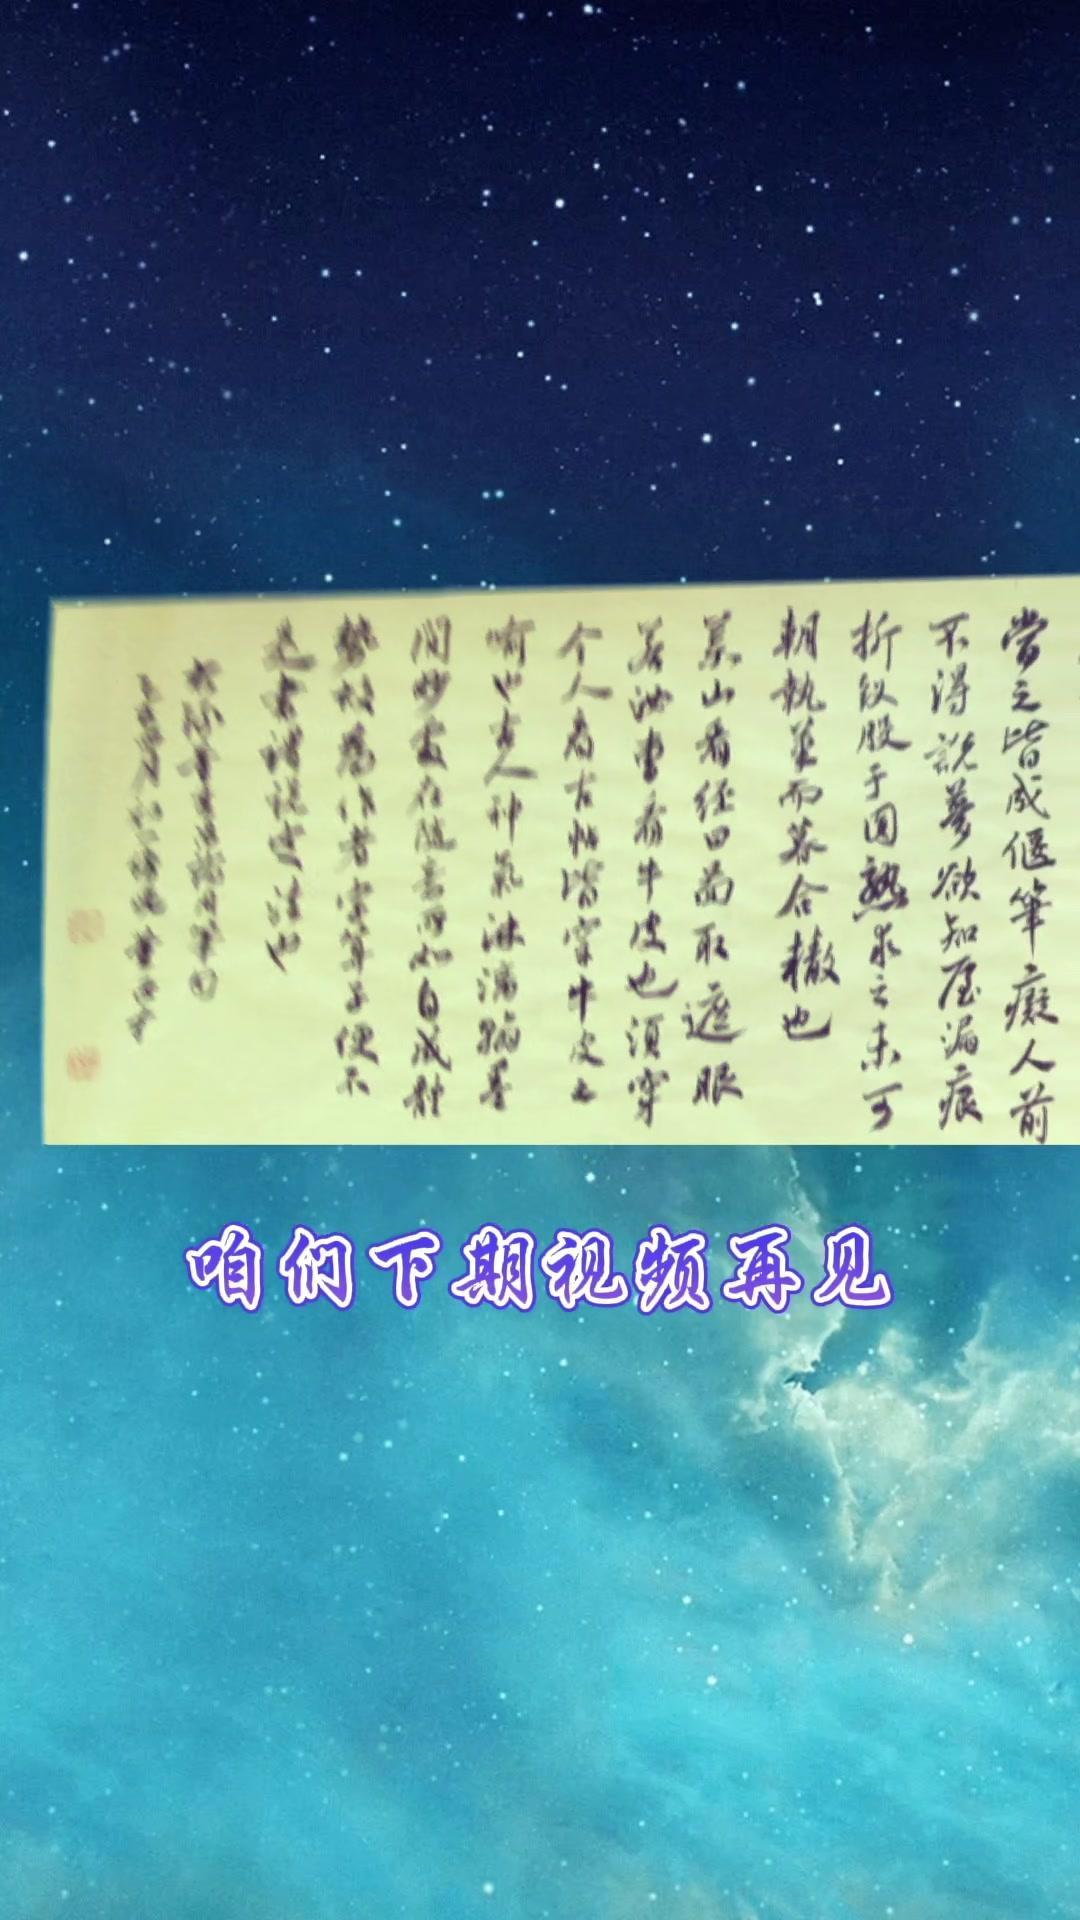 當之皆成偃筆癡人前
不得說夢欲知屋漏痕
折釵股于圓熟求之未可
朝執筆而暮合轍也
藥山看經曰圖取遮眼
若汝曹看牛皮也須穿
今人看古帖皆穿牛皮之
喻也古人神氣淋漓翰墨
間妙處在隨意所如自成體
勢故為作者字如算子便不
是書謂說定法也
咱们下期视频再见